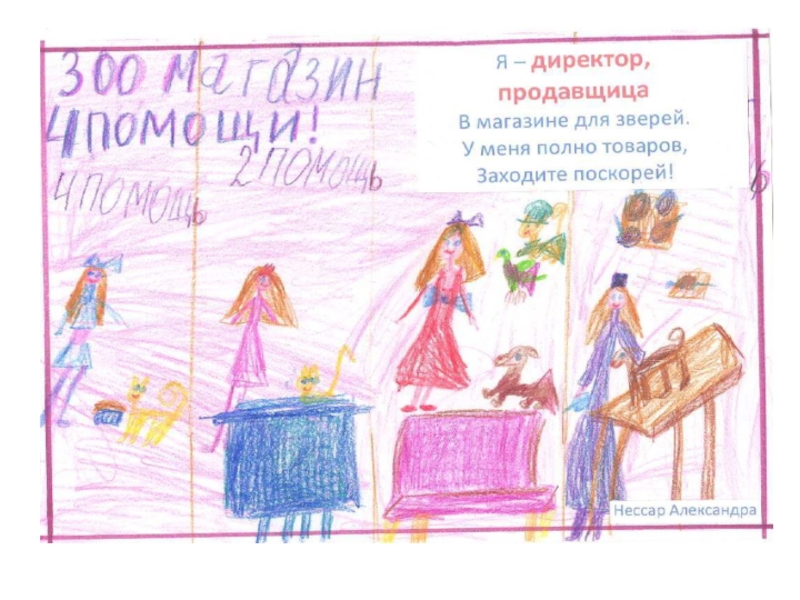 ЗОО магазин
4 помощи!
4 помощь
2 помощь
Я – директор,
продавщица
В магазине для зверей.
У меня полно товаров,
Заходите поскорей!
Нессар Александра